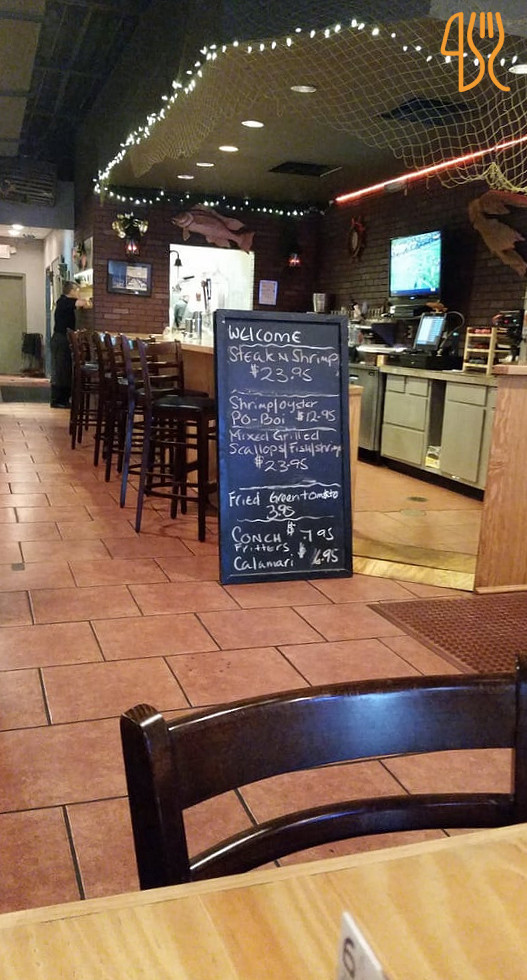 WELCOME
Steak N Shrimp
$23.95
Shrimp/oyster
PO-Boi $12.95
Mixed Grilled
Scallops/Fish/shrimp
$23.95
Fried Greentomato
3.95
CONCH $7.95
Fritters
Calamari $6.95
6